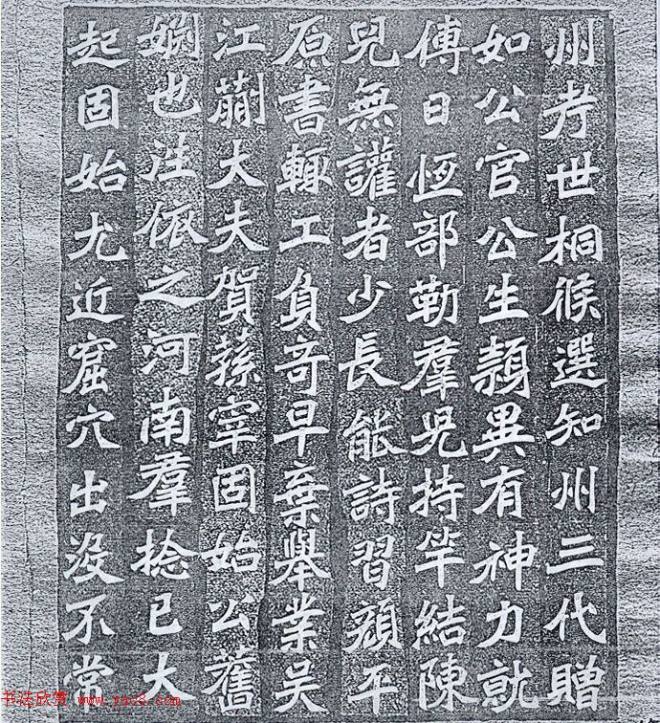 州考世桐候選知州三代贈
如公官公生穎異有神力就
傅日恆部勒羣兒持竿結陳
兒無讙者少長能詩習顏平
原書輒工負奇早棄舉業吴
江蒯大夫賀蓀宰固始公舊
姻也往依之河南羣捻已大
起固始尤近窟穴出没不常
书法欣赏 www.yac8.com